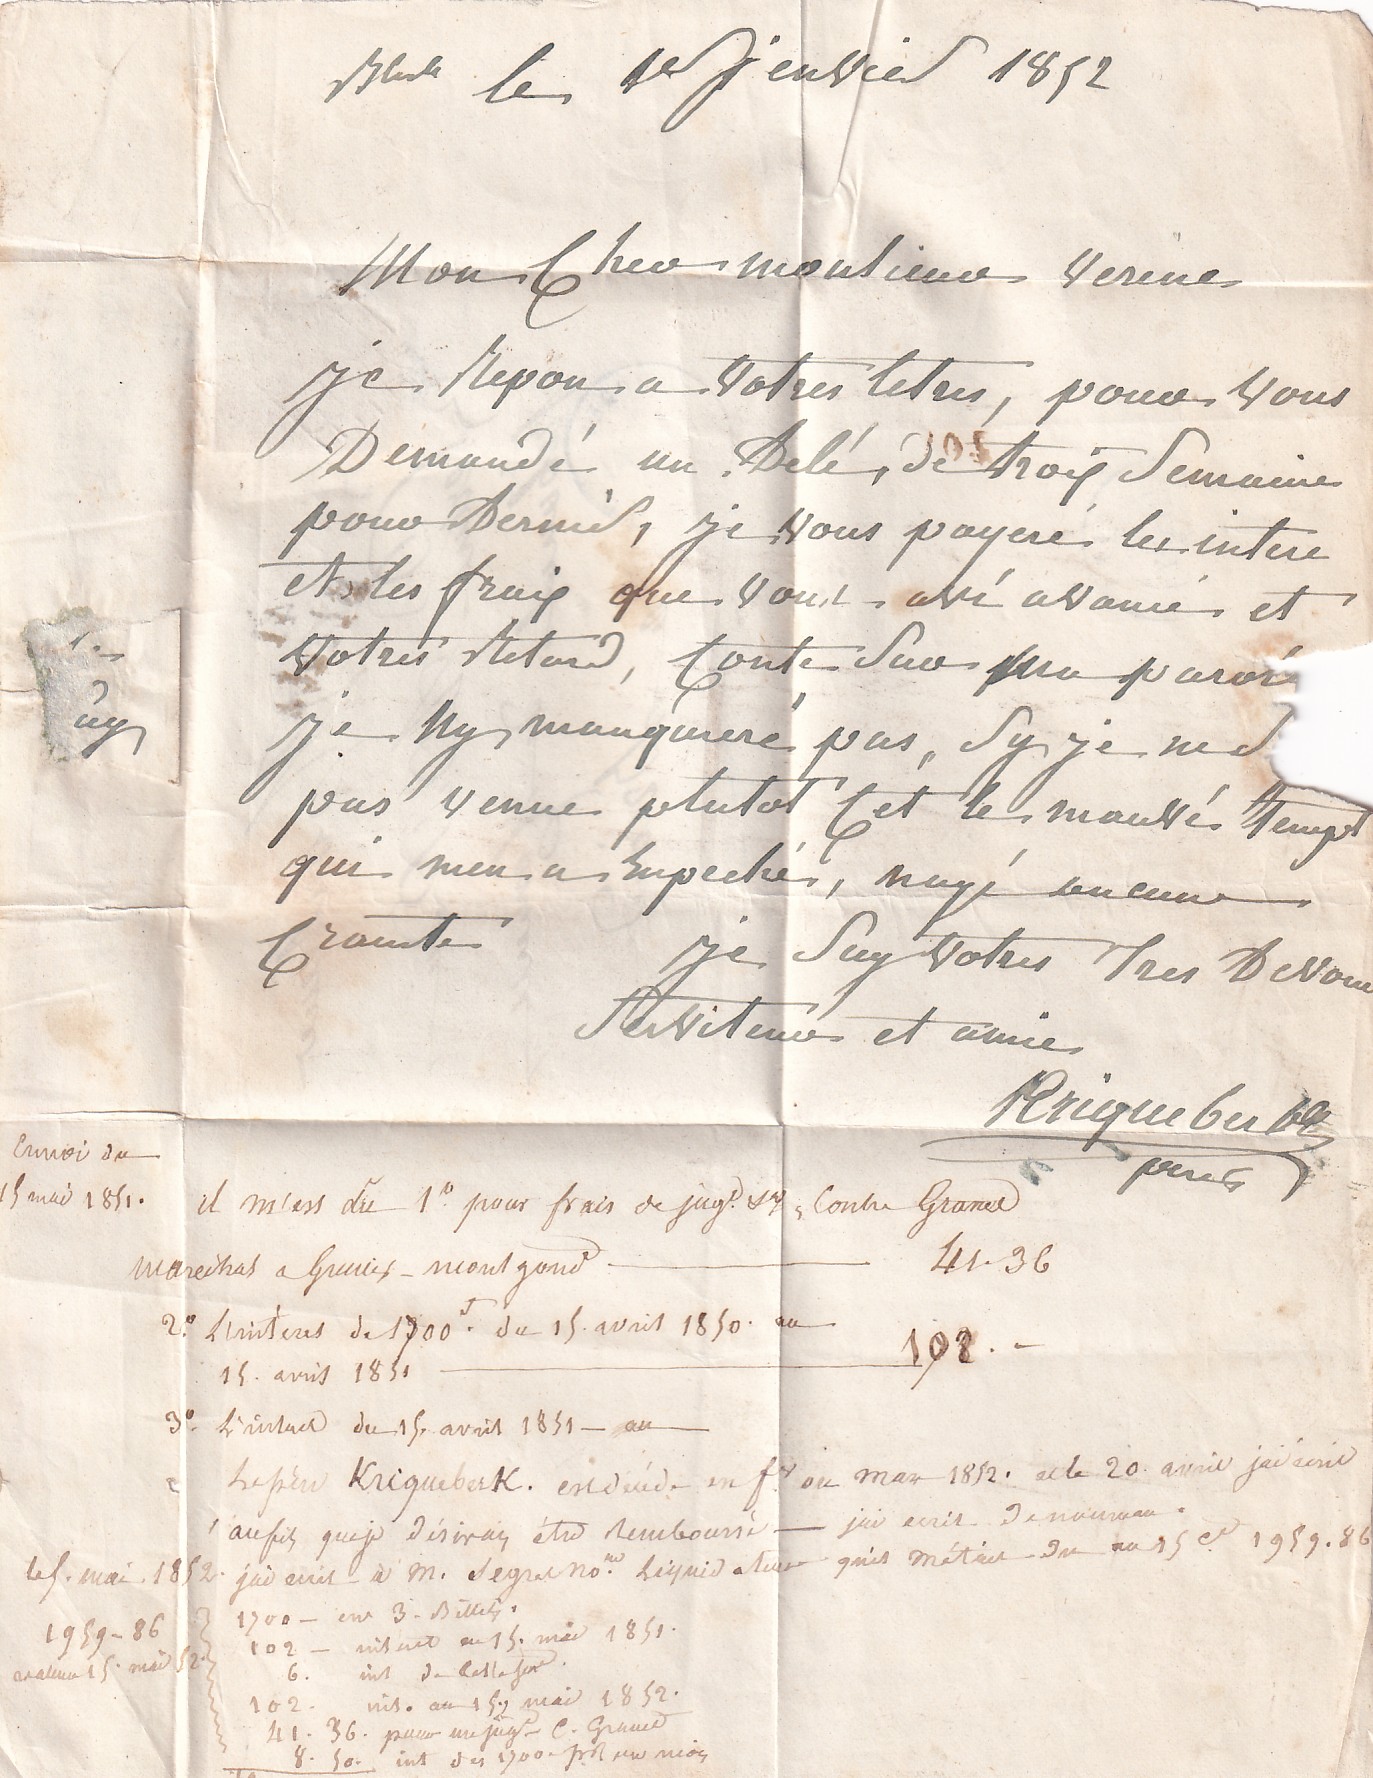 le 1er jenvier 1852
Mon Cher monsieur Verine
je Repon a Votres letres, pour Vous
Demandé un Delé, de troix Semaine
pour Dernié, je Vous payeré les intere
et les fraix que vous avé avancé et
Votres Retard, Conte Sur ma parol
je Ny manqueré pas, Sy je ne S
pas venue plutot Cet le mauvés tempt
qui men a Empeché, nayé aucune
Crainte
je Suy Votres tres Devoue
Serviteur et amie
Kriqueberk
pere
Envoi du
15 mai 1851.
il m'est dû 1º pour frais de jugt. &a, Contre Grand
marechal a
41.36
2º L'interet de 1700f. du 15. avril 1850. au
15. avril 1851
102. -
3º. L'interet du 15. avril 1851 - au
Le père Kriqueberk. est décédé en fer ou mars 1852. et le 20. avril j'ai écrit
au fils que je désirais être remboursé - j'ai ecrit de nouveau.
le 5. mai 1852. j'ai ecrit à M. Segret Nore. Liquidateur qu'il m'était du au 15 Ct 1959.86
1959-86
valeur 15. mai 52.
1700 - en 3. Billets.
102 - interet au 15. mai 1851.
6. int de
102. int. au 15 mai 1852.
41.36. pour un jugt C. Grand
8.50. int des 1700 pr un mois